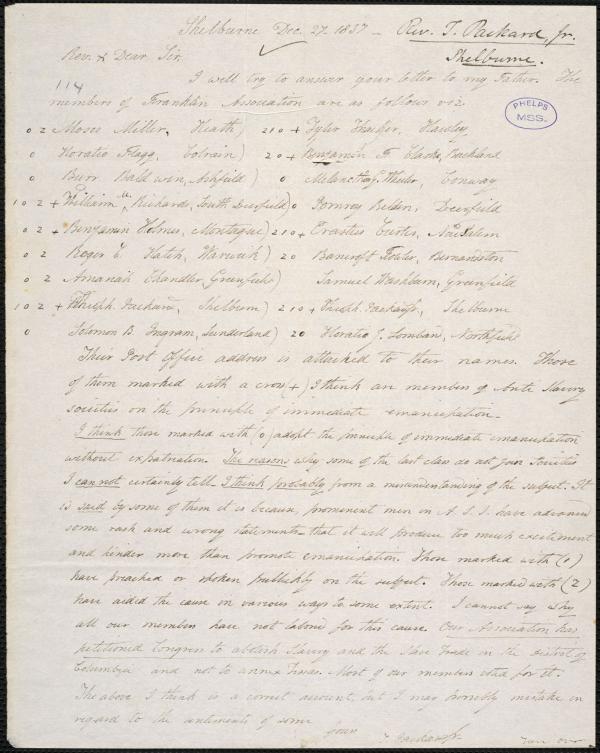 Shelburne Dec. 27. 1837 - Rev. T. Packard, Jr.
Shelburne.
Rev. & Dear Sir,
114
I will try to answer your letter to my Father. The
members of Franklin Association are as follows viz.
PHELPS
MSS.
0 2 Moses Miller, Heath) 2 1 0 + Tyler Thacher, Hawley
0 Horatio Flagg, Colrain) 2 0 + Benjamin F. Clarke, Buckland
0 Burr Baldwin, Ashfield) 0 Melancthon G. Wheeler, Conway
1 0 2 + William M. Richards, South Deerfield) 0 Pomroy Belden, Deerfield
0 2 + Benjamin Holmes, Montague) 2 1 0 + Erastus Curtis, New Salem
0 2 Roger C. Hatch, Warwick) 2 0 Bancroft Fowler, Bernardston
0 2 Amariah Chandler, Greenfield) Samuel Washburn, Greenfield
1 0 2 + Theoph. Packard, Shelburn) 2 1 0 + Theoph. Packard Jr., Shelburne
0 Solomon B. Ingram, Sunderland) 2 0 Horatio J. Lombard, Northfield
Their Post Office address is attached to their names. Those
of them marked with a cross (+) I think are members of Anti Slavery
societies on the principle of immediate emancipation.
I think those marked with (0) adopt the principle of immediate emancipation
without expatriation. The reasons why some of the last class do not join societies
I cannot certainly tell. I think probably from a misunderstanding of the subject. It
is said by some of them it is because, prominent men in A. S. S. have advanced
some rash and wrong statements - that it will produce too much excitement
and hinder more than promote emancipation. Those marked with (1)
have preached or spoken publickly on the subject. Those marked with (2)
have aided the cause in various ways to some extent. I cannot say why
all our members have not labored for this cause. Our Association has
petitioned Congress to abolish Slavery and the Slave trade in the District of
Columbia and not to annex Texas. Most of our members voted for it.
The above I think is a correct account, but I may possibly mistake in
regard to the sentiments of some
Yours T. Packard Jr.
Turn over